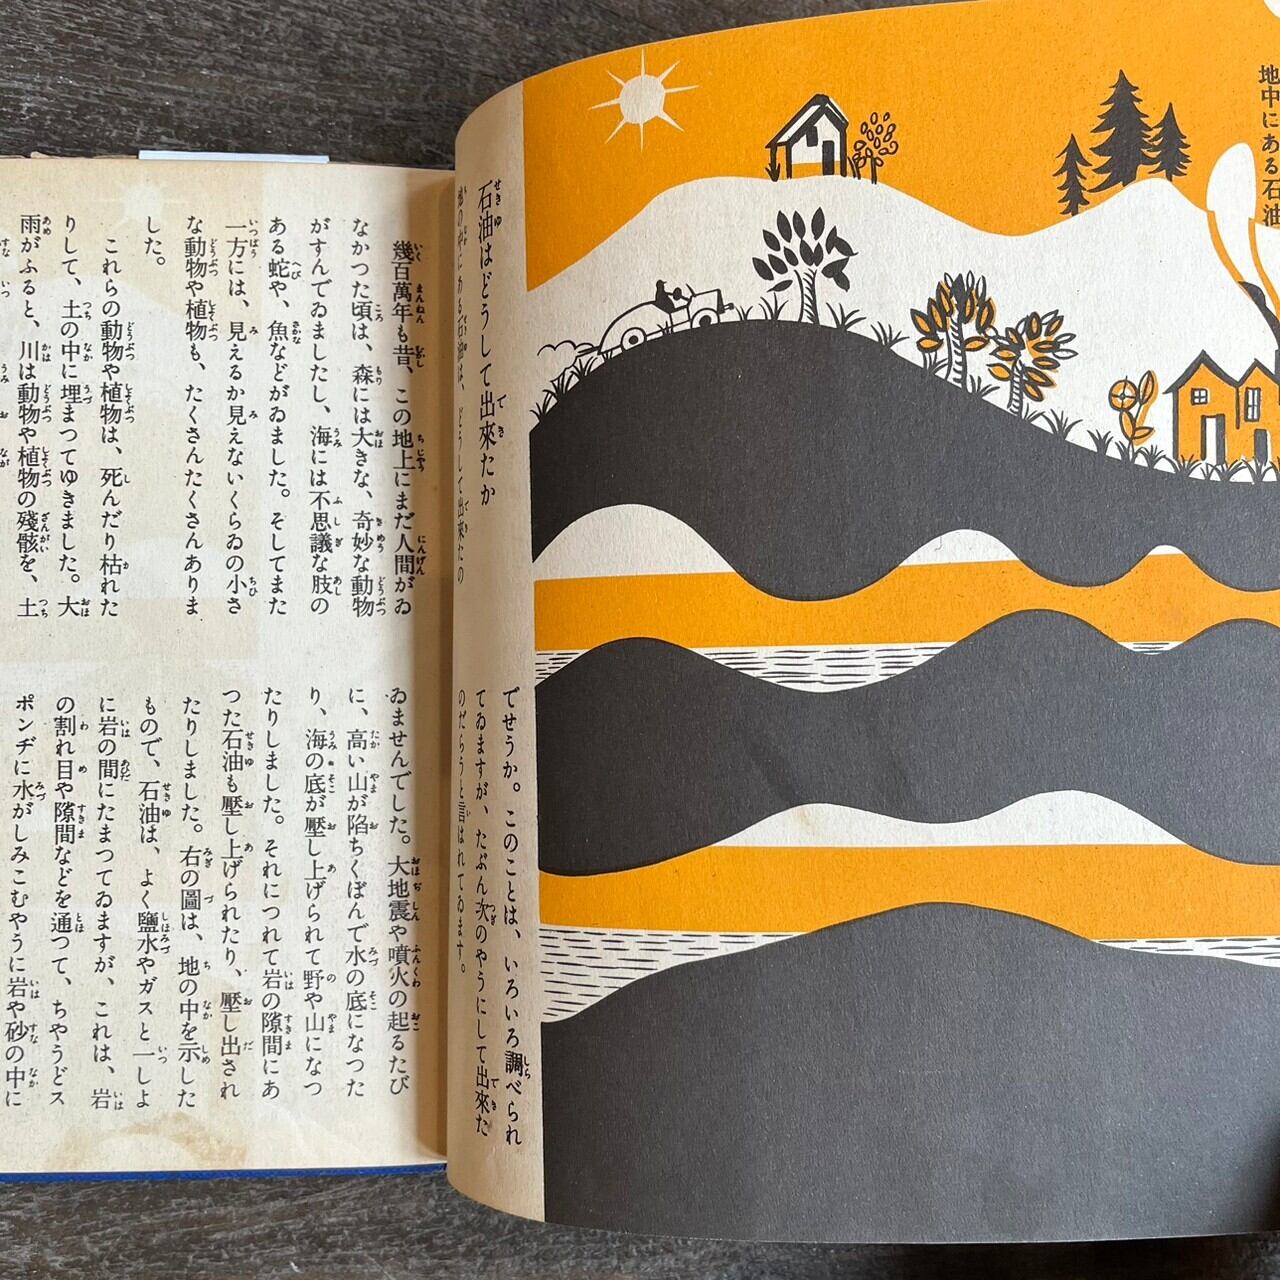 地中にある石油
石油はどうして出來たか
地の中にある石油は、どうして出來たの
でせうか。このことは、いろいろ調べられ
てゐますが、たぶん次のやうにして出來た
のだらうと言はれてゐます。
幾百萬年も昔、この地上にまだ人間がゐ
なかつた頃は、森には大きな、奇妙な動物
がすんでゐましたし、海には不思議な肢の
ある蛇や、魚などがゐました。そしてまた
一方には、見えるか見えないくらゐの小さ
な動物や植物も、たくさんたくさんありま
した。
これらの動物や植物は、死んだり枯れた
りして、土の中に埋まつてゆきました。大
雨がふると、川は動物や植物の殘骸を、土
ゐませんでした。大地震や噴火の起るたび
に、高い山が陷ちくぼんで水の底になつた
り、海の底が壓し上げられて野や山になつ
たりしました。それにつれて岩の隙間にあ
つた石油も壓し上げられたり、壓し出され
たりしました。右の圖は、地の中を示した
もので、石油は、よく鹽水やガスと一しよ
に岩の間にたまつてゐますが、これは、岩
の割れ目や隙間などを通つて、ちやうどス
ポンヂに水がしみこむやうに岩や砂の中に